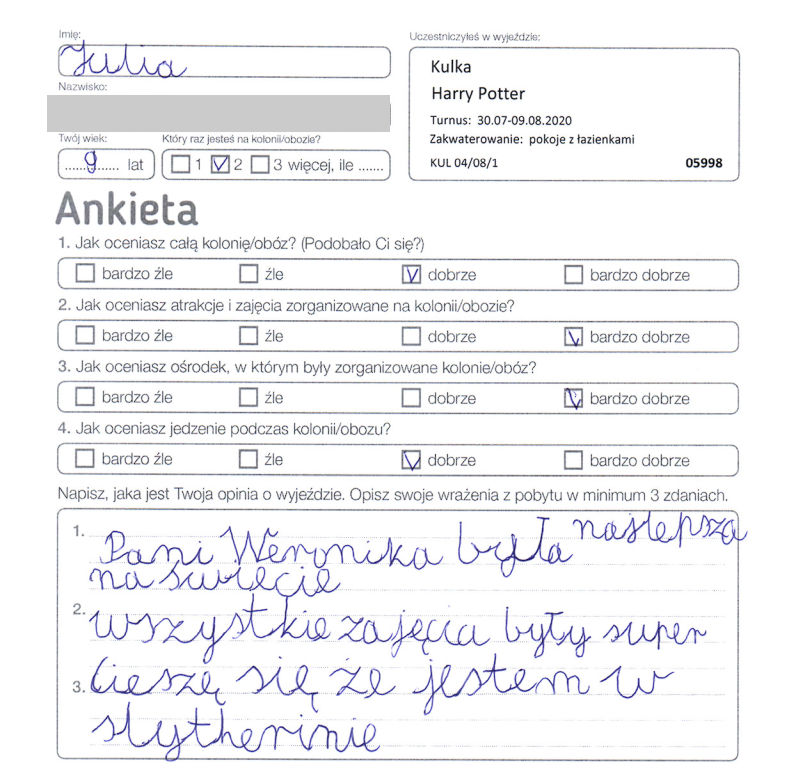 Imię:
Julia
Nazwisko:
Twój wiek:
Który raz jesteś na kolonii/obozie?
......9...... lat
1 2 3 więcej, ile .......
Uczestniczyłeś w wyjeździe:
Kulka
Harry Potter
Turnus: 30.07-09.08.2020
Zakwaterowanie: pokoje z łazienkami
KUL 04/08/1 05998
Ankieta
1. Jak oceniasz całą kolonię/obóz? (Podobało Ci się?)
bardzo źle źle dobrze bardzo dobrze
2. Jak oceniasz atrakcje i zajęcia zorganizowane na kolonii/obozie?
bardzo źle źle dobrze bardzo dobrze
3. Jak oceniasz ośrodek, w którym były zorganizowane kolonie/obóz?
bardzo źle źle dobrze bardzo dobrze
4. Jak oceniasz jedzenie podczas kolonii/obozu?
bardzo źle źle dobrze bardzo dobrze
Napisz, jaka jest Twoja opinia o wyjeździe. Opisz swoje wrażenia z pobytu w minimum 3 zdaniach.
1. Pani Weronika była najlepsza
na świecie
2. wszystkie zajęcia były super
3. Cieszę się że jestem w
slytherinie